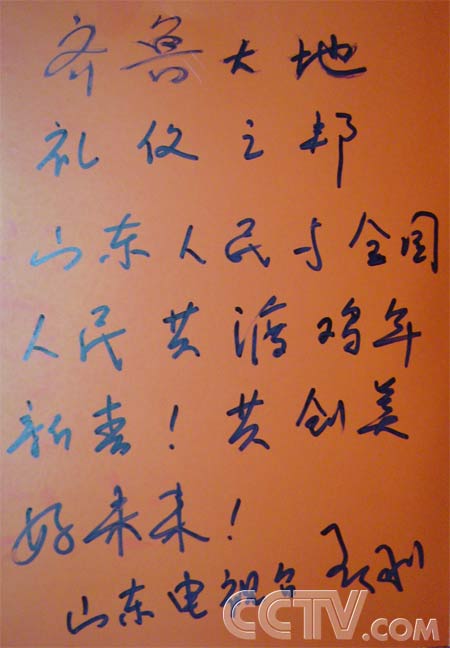 齐鲁大地
礼仪之邦
山东人民与全国
人民共渡鸡年
新春！共创美
好未来！
山东电视台
CCTV.com